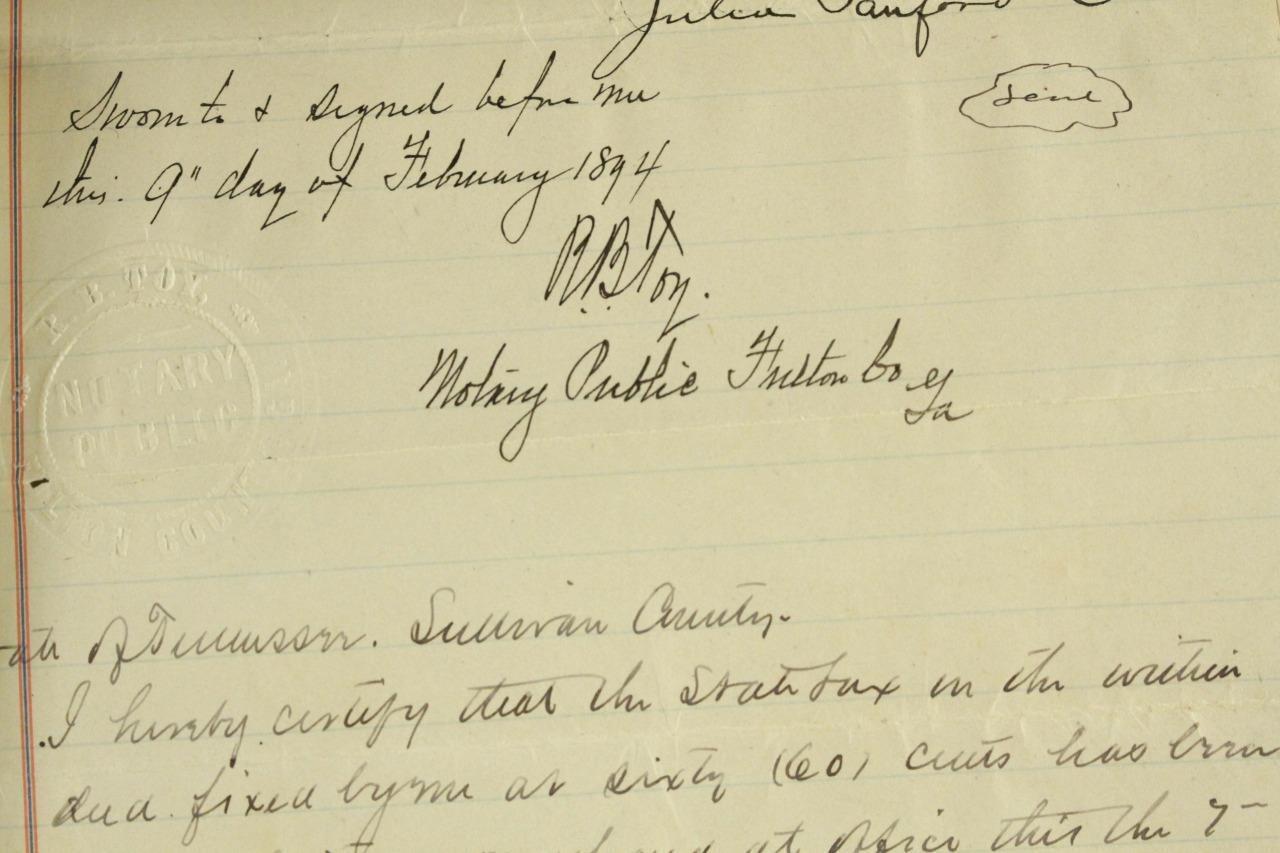 Julia Sanford
Seal
Sworn to & signed before me
this. 9" day of February 1894
R.B. Toy.
Notary Public Fulton Co Ga
R. B. TOY
NOTARY
PUBLIC
TON COUN
ate of Tennessee. Sullivan County.
I hereby certify that the State tax on the within
deed. fixed by me at sixty (60) cents has been
at office this the 7